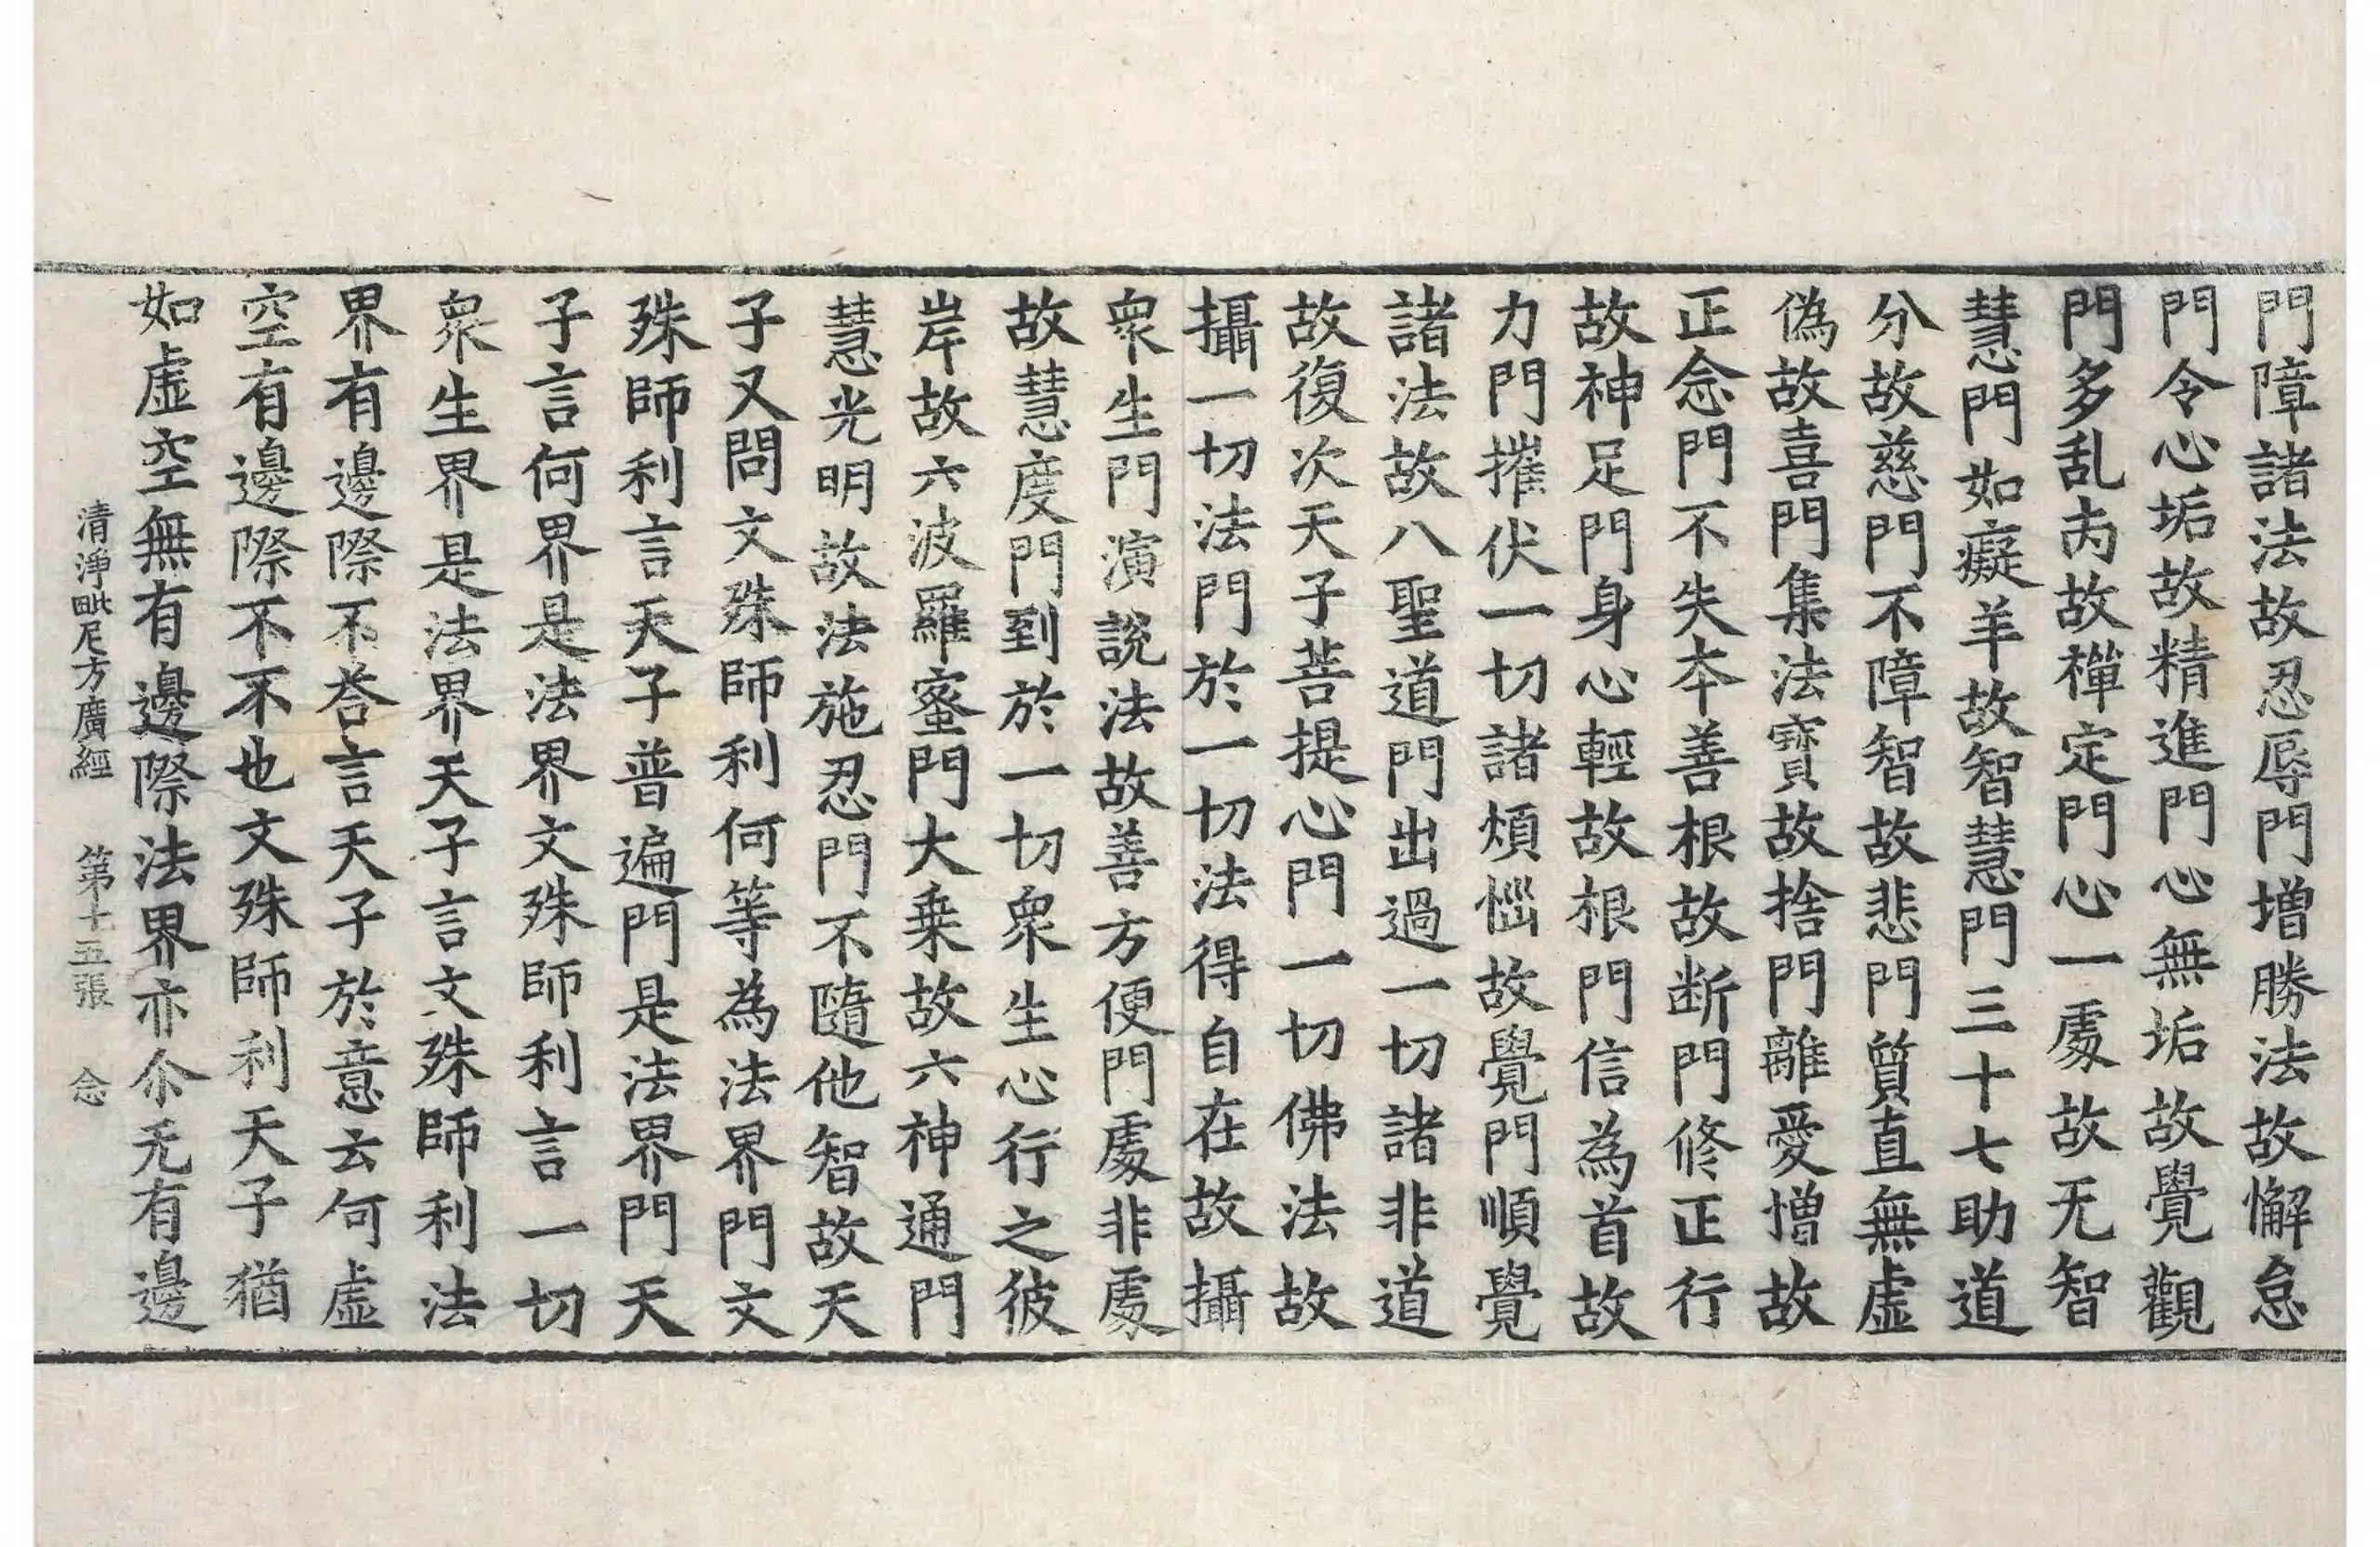 門障諸法故忍辱門増勝法故懈怠
門令心垢故精進門心無垢故覺觀
門多乱㐫故禪定門心一處故无智
慧門如癡羊故智慧門三十七助道
分故慈門不障智故悲門質直無虛
偽故喜門集法寶故捨門離愛憎故
正念門不失夲善根故断門修正行
故神足門身心輕故根門信為首故
力門摧伏一切諸煩惱故覺門順覺
諸法故八聖道門出過一切諸非道
故復次天子菩提心門一切佛法故
攝一切法門於一切法得自在故攝
衆生門演說法故善方便門處非處
故慧度門到於一切衆生心行之彼
岸故六波羅蜜門大乗故六神通門
慧光明故法施忍門不隨他智故天
子又問文殊師利何等為法界門文
殊師利言天子普遍門是法界門天
子言何界是法界文殊師利言一切
衆生界是法界天子言文殊師利法
界有邊際不荅言天子於意云何虛
空有邊際不不也文殊師利天子猶
如虛空無有邊際法界亦尒无有邊
清淨毗尼方廣經 第十五張 念